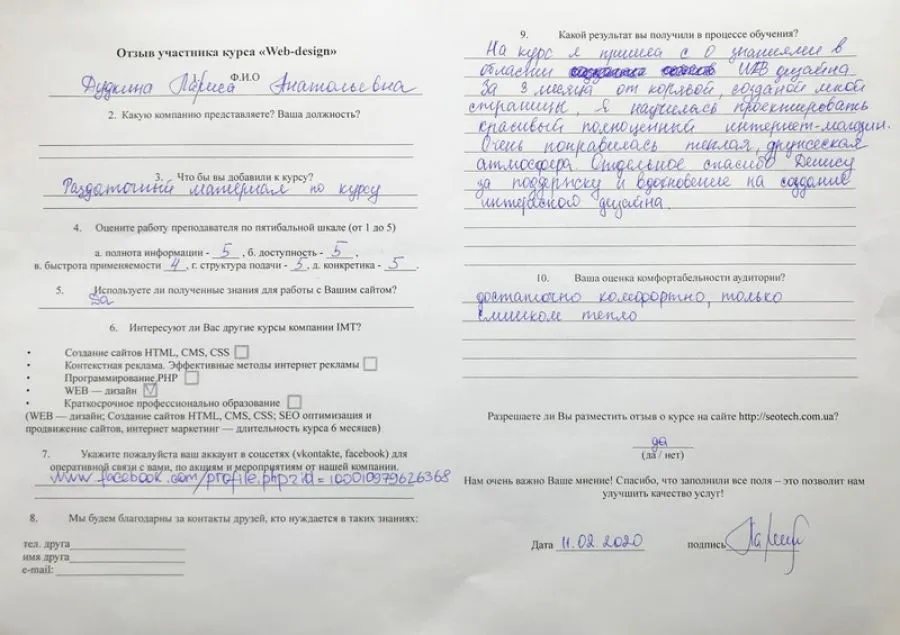 Отзыв участника курса «Web-design»
Ф.И.О
Дудкина Лариса Анатольевна
2. Какую компанию представляете? Ваша должность?
3. Что бы вы добавили к курсу?
Раздаточный материал по курсу
4. Оцените работу преподавателя по пятибальной шкале (от 1 до 5)
а. полнота информации - 5 , б. доступность - 5 ,
в. быстрота применяемости 4 , г. структура подачи - 5 , д. конкретика - 5 .
5. Используете ли полученные знания для работы с Вашим сайтом?
Да
6. Интересуют ли Вас другие курсы компании IMT?
• Создание сайтов HTML, CMS, CSS
• Контекстная реклама. Эффективные методы интернет рекламы
• Программирование PHP
• WEB — дизайн
• Краткосрочное профессионально образование
(WEB — дизайн; Создание сайтов HTML, CMS, CSS; SEO оптимизация и
продвижение сайтов, интернет маркетинг — длительность курса 6 месяцев)
7. Укажите пожалуйста ваш аккаунт в соцсетях (vkontakte, facebook) для
оперативной связи с вами, по акциям и мероприятиям от нашей компании.
www.facebook.com/profile.php?id=100010979626368
8. Мы будем благодарны за контакты друзей, кто нуждается в таких знаниях:
тел. друга
имя друга
e-mail:
9. Какой результат вы получили в процессе обучения?
На курс я пришла с 0 знаниями в
области WEB дизайна
За 3 месяца от корявой, созданой мной
страницы, я научилась проектировать
красивый полноценный интернет-магазин.
Очень понравилась теплая, дружеская
атмосфера. Отдельное спасибо Денису
за поддержку и вдохновение на создание
интересного дизайна.
10. Ваша оценка комфортабельности аудитории?
достаточно комфортно, только
слишком тепло
Разрешаете ли Вы разместить отзыв о курсе на сайте http://seotech.com.ua?
да
(да / нет)
Нам очень важно Ваше мнение! Спасибо, что заполнили все поля – это позволит нам
улучшить качество услуг!
Дата 11.02.2020 подпись